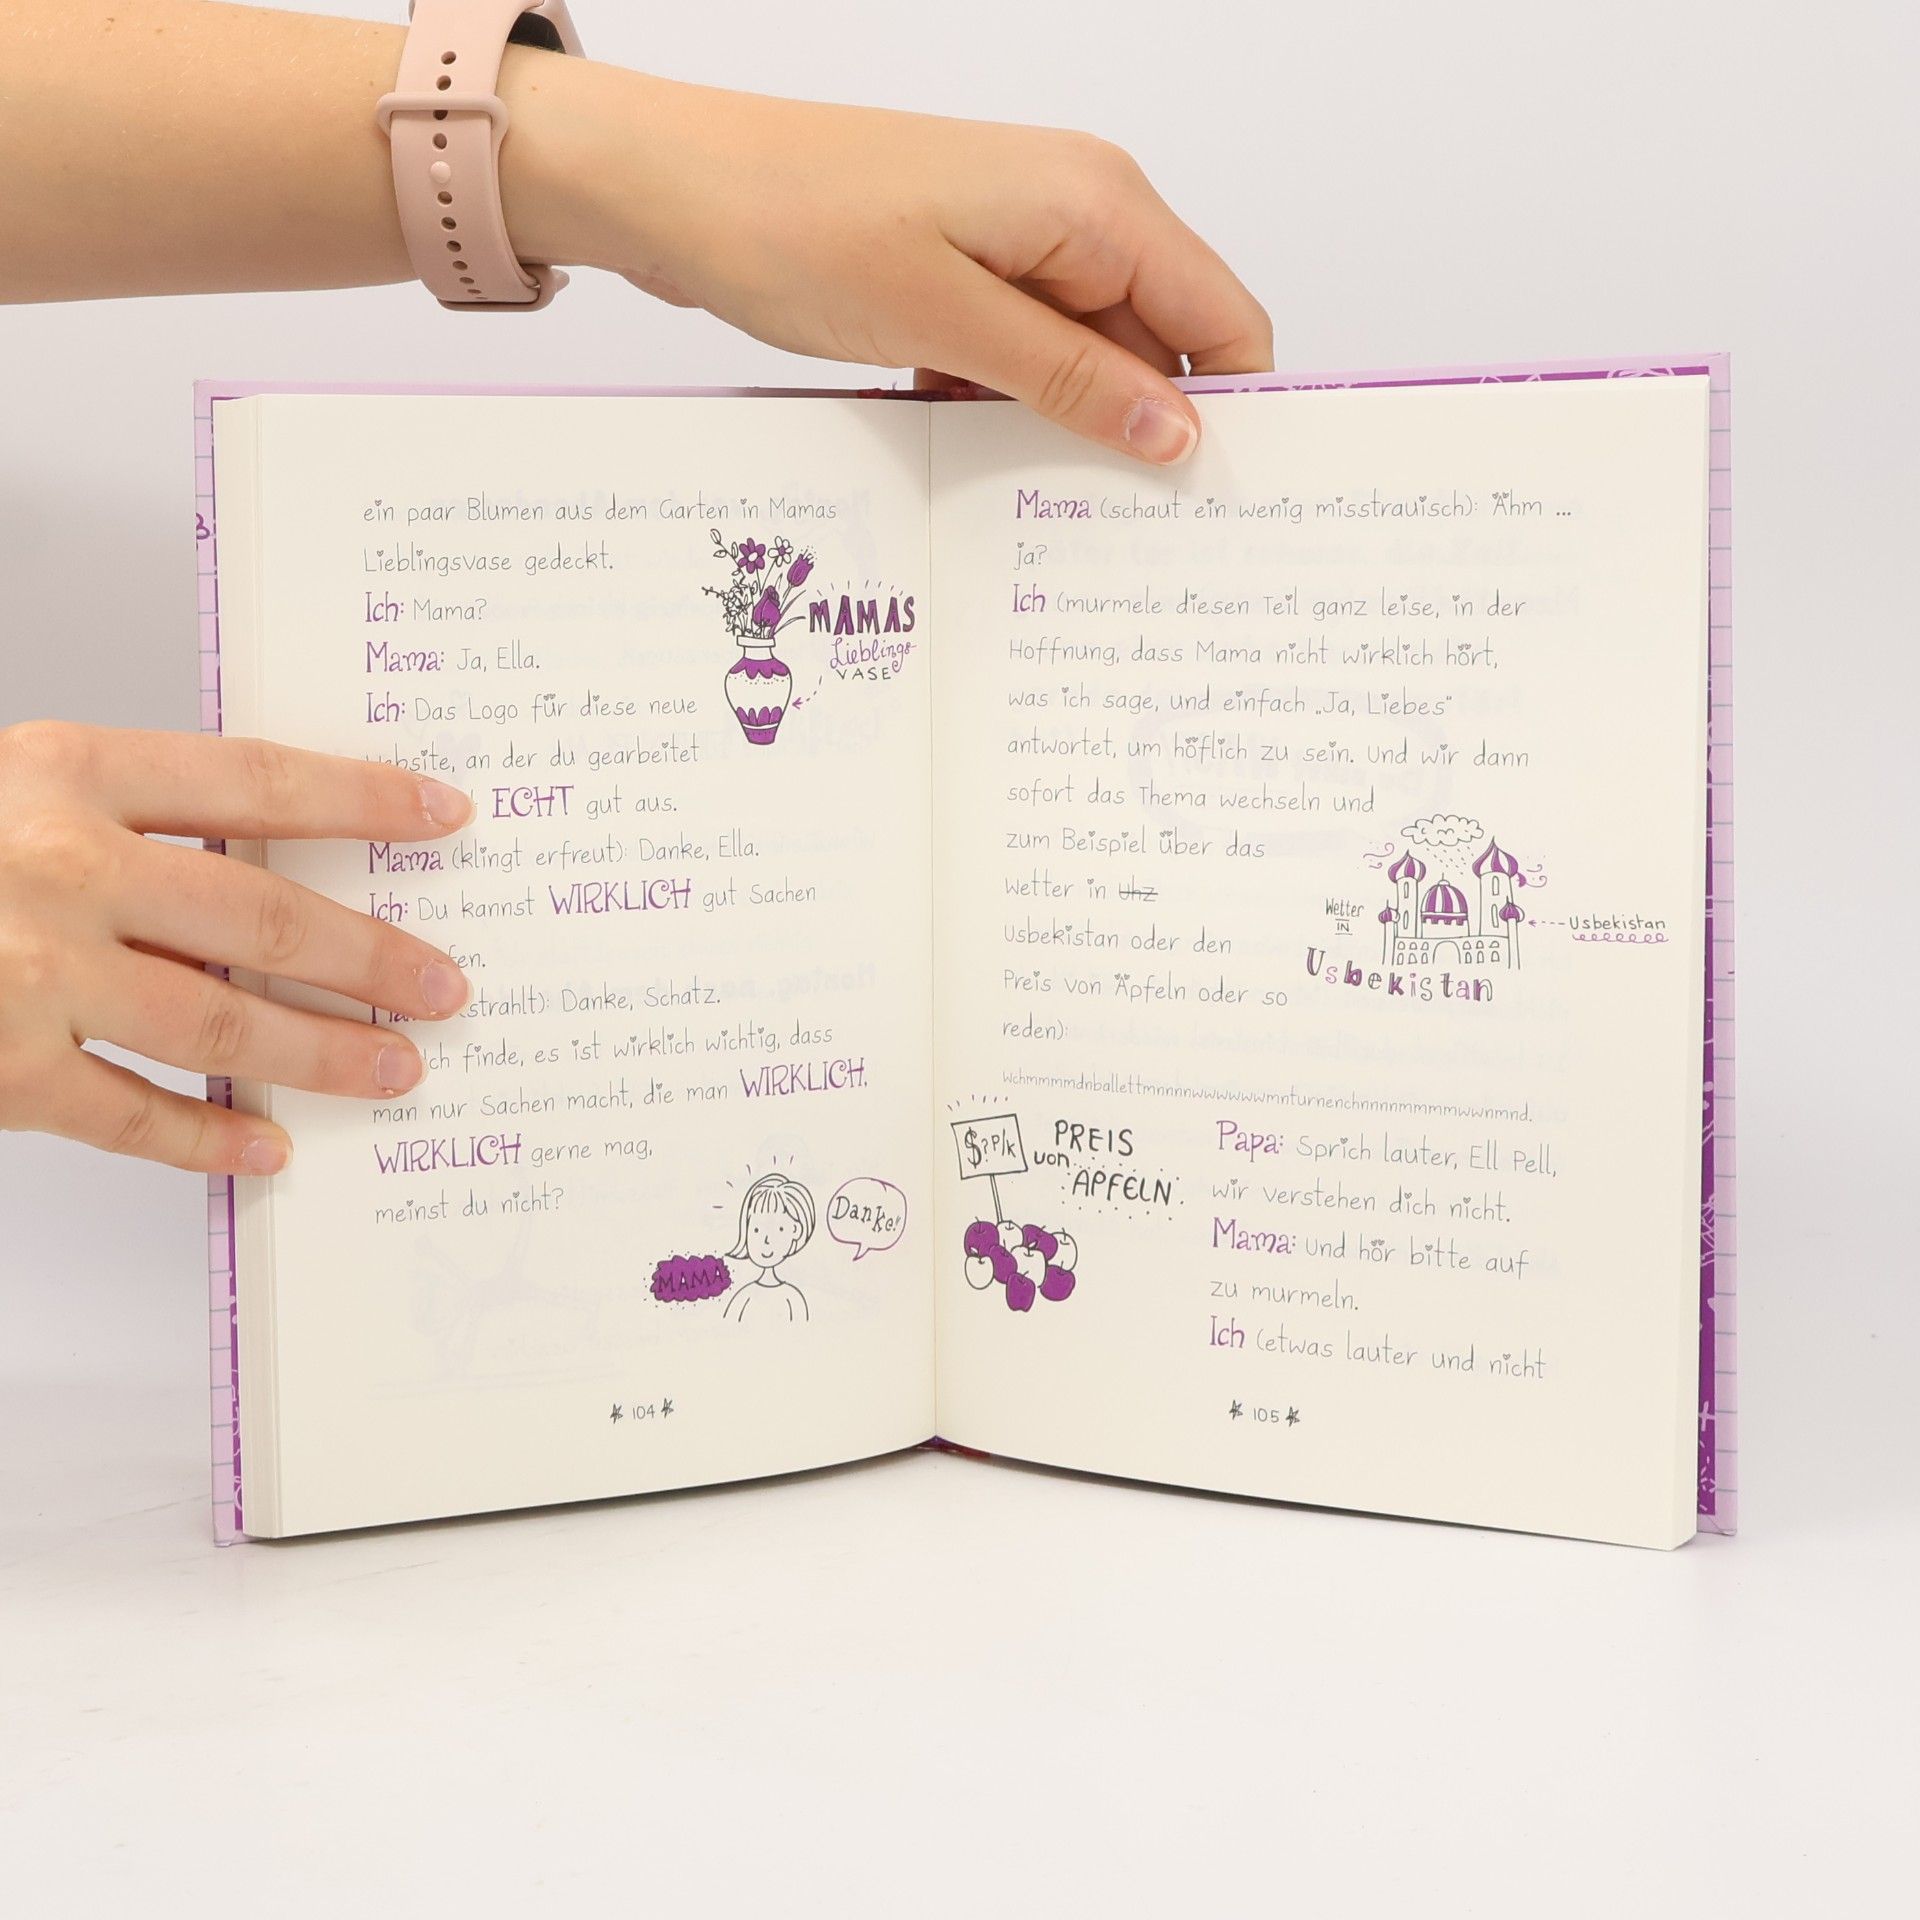 ein paar Blumen aus dem Garten in Mamas
Lieblingsvase gedeckt.
Ich: Mama?
Mama: Ja, Ella.
Ich: Das Logo für diese neue
an der du gearbeitet
ECHT gut aus.
Mama (klingt erfreut): Danke, Ella.
Ich: Du kannst WIRKLICH gut Sachen
strahlt): Danke, Schatz.
Ich finde, es ist wirklich wichtig, dass
man nur Sachen macht, die man WIRKLICH,
WIRKLICH gerne mag,
meinst du nicht?
MAMAS
Lieblings-
VASE
MAMA
Danke!
104
Mama (schaut ein wenig misstrauisch): Ähm ...
ja?
Ich (murmele diesen Teil ganz leise, in der
Hoffnung, dass Mama nicht wirklich hört,
was ich sage, und einfach „Ja, Liebes"
antwortet, um höflich zu sein. Und wir dann
sofort das Thema wechseln und
zum Beispiel über das
Wetter in Uhz
Usbekistan oder den
Preis von Äpfeln oder so
reden):
Wetter
IN
Usbekistan
Usbekistan
wchmmmmdnballettmnnnnwwwwwwmnturnenchnnnnmmmmwwnmnd.
$?P/K
PREIS
von
ÄPFELN
Papa: Sprich lauter, Ell Pell,
wir verstehen dich nicht.
Mama: Und hör bitte auf
zu murmeln.
Ich (etwas lauter und nicht
105